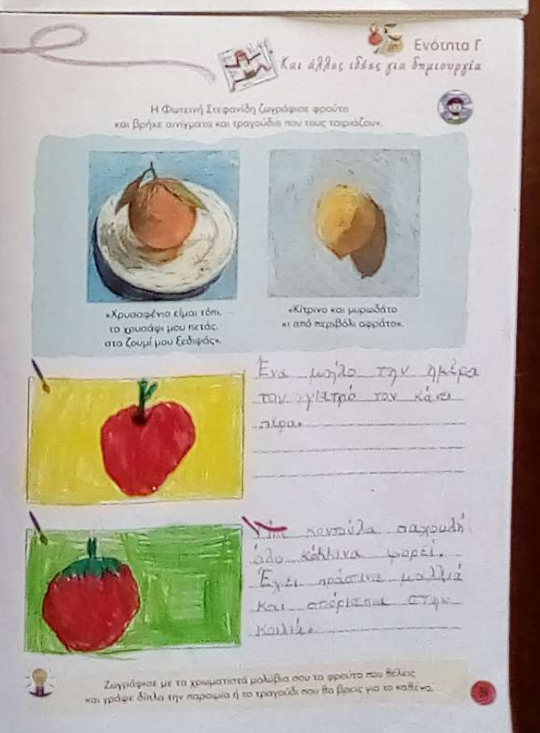 Ενότητα Γ
Και άλλες ιδέες για δημιουργία
Η Φωτεινή Στεφανίδη ζωγράφισε φρούτα
και βρήκε αινίγματα και τραγούδια που τους ταιριάζουν.
«Χρυσαφένιο είμαι τόπι,
το χρυσάφι μου πετάς,
στο ζουμί μου ξεδιψάς».
«Κίτρινο και μυρωδάτο
κι από περιβόλι αφράτο».
Ένα μήλο την ημέρα
τον γιατρό τον κάνει
πέρα.
Μια κοντούλα παχουλή
όλο κόκκινα φορεί.
Έχει πράσινα μαλλιά
και σπόρια στην
κοιλιά.
Ζωγράφισε με τα χρωματιστά μολύβια σου τα φρούτα που θέλεις
και γράψε δίπλα την παροιμία ή το τραγούδι που θα βρεις για το καθένα.